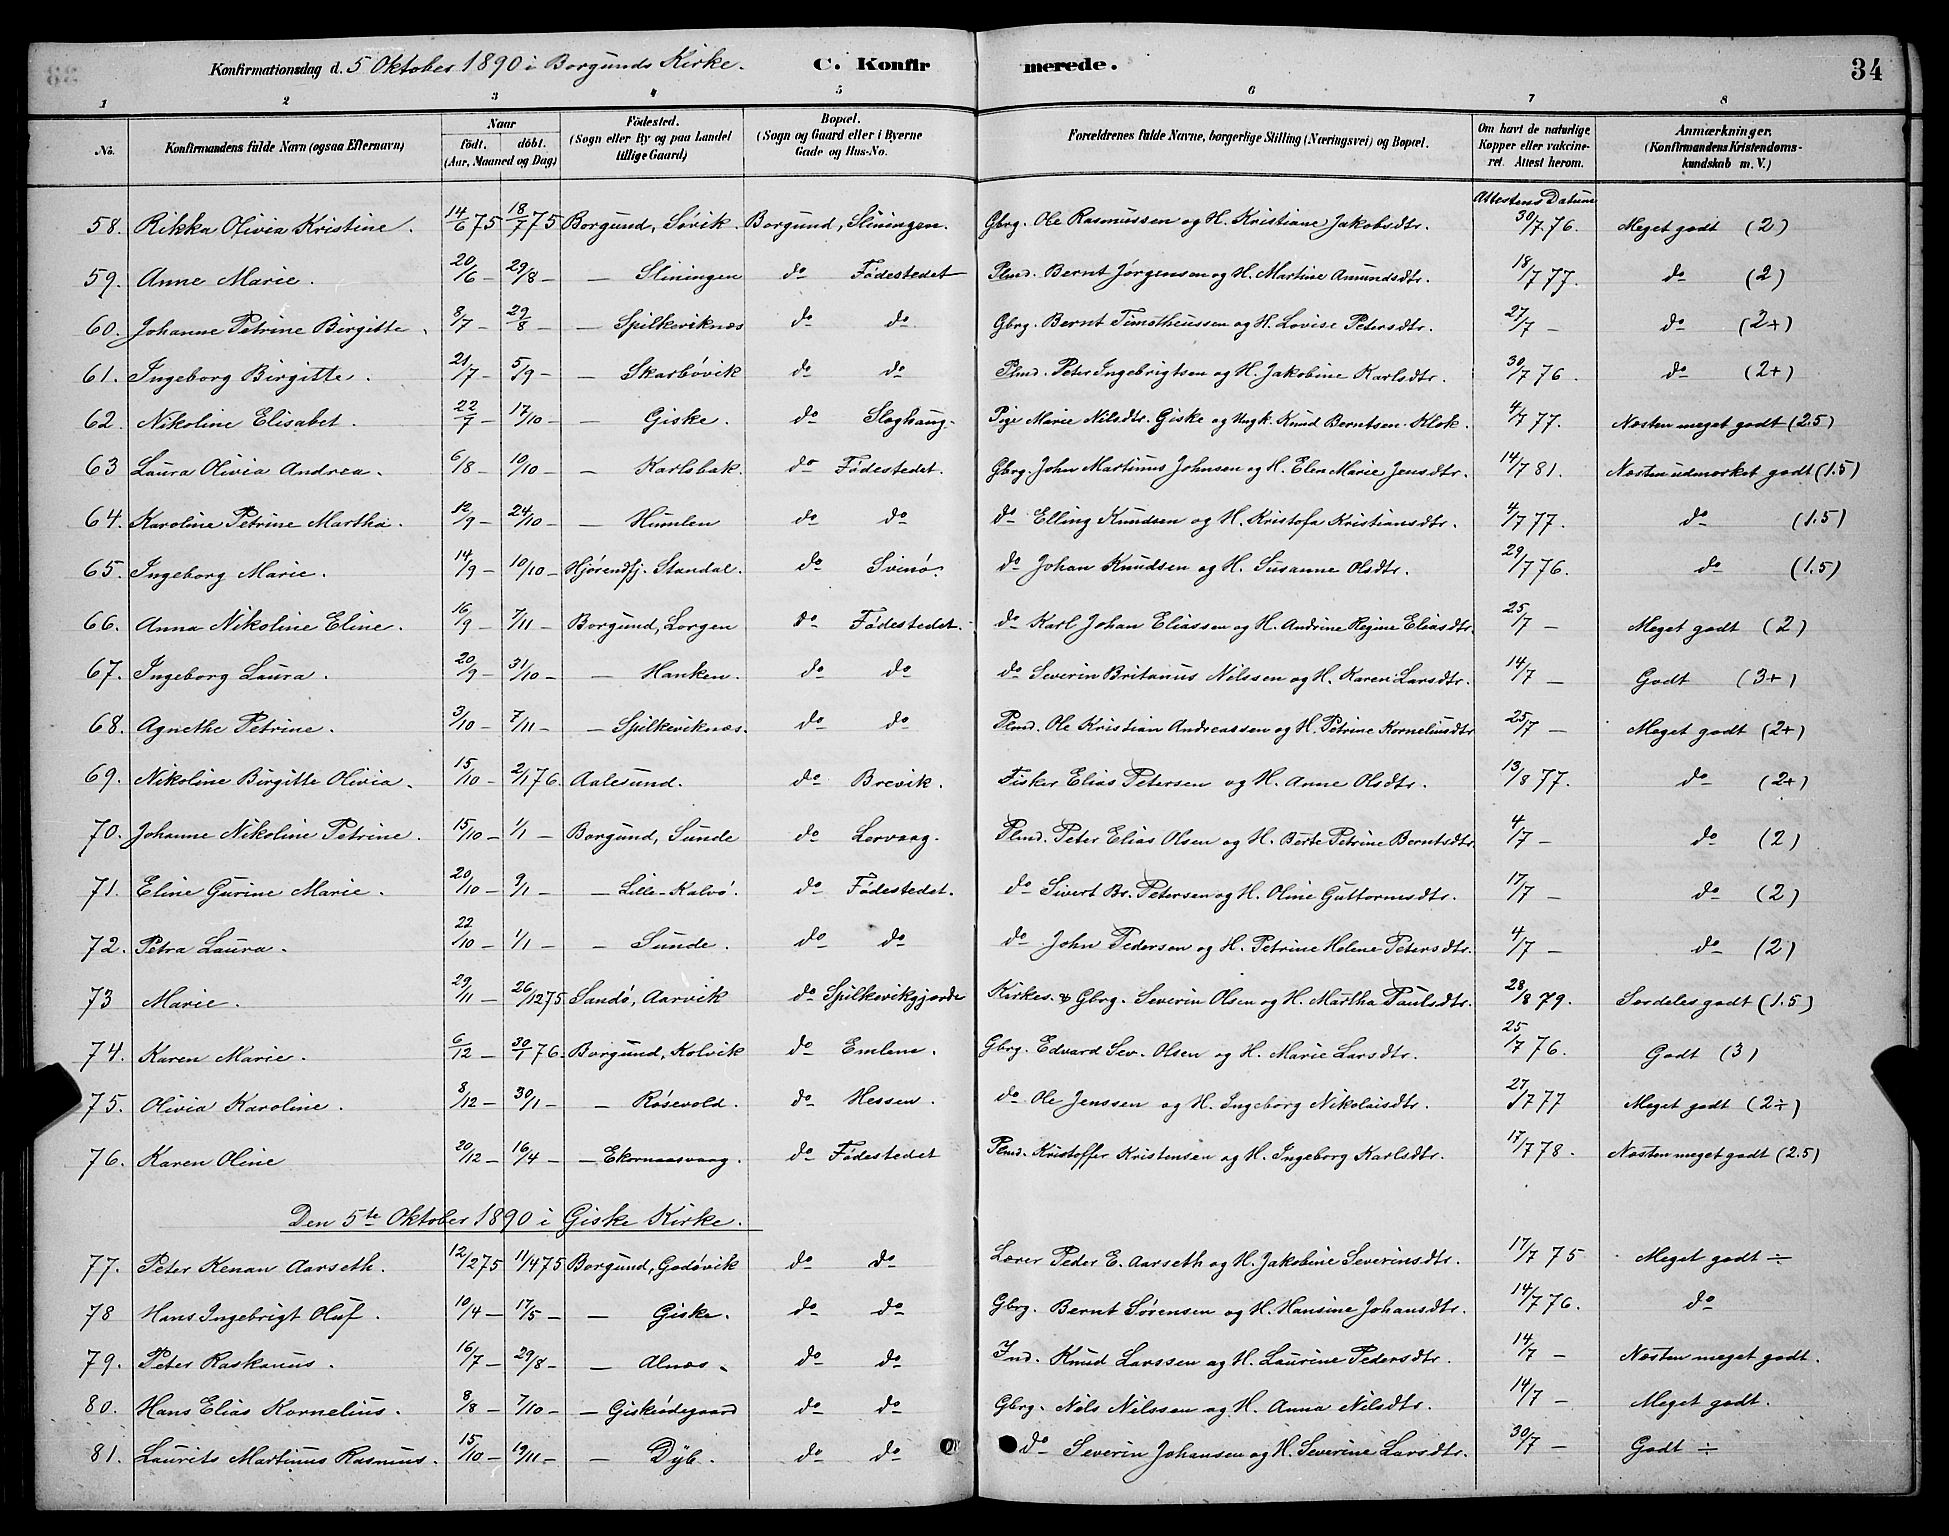 Konfirmationsdag d. 5 Oktober 1890 i Borgunds Kirke. C. Konfirmerede. 34
1 2 3 4 5 6 7 8
No. Konfirmandens fulde Navn (ogsaa Efternavn) Naar født. døbt. (Aar, Maaned og Dag) Fødested. (Sogn eller By og paa Landet tillige Gaard) Bopæl. (Sogn og Gaard eller i Byerne Gade og Hus-No. Forældrenes fulde Navne, borgerlige Stilling (Næringsvei) og Bopæl. Om havt de naturlige Kopper eller vakcineret. Attest herom. Anmærkninger. (Konfirmandens Kristendomskundskab m. V.)
Attestens Datum
58. Rikka Olivia Kristine. 14/6 75 18/7 75 Borgund, Søvik. Borgund, Sliningen. Gbrg. Ole Rasmussen og H. Kristiane Jakobsdtr. 30/7 76. Meget godt (2)
59. Anne Marie. 20/6 — 29/8 — — Sliningen do Fødestedet Plmd. Bernt Jørgensen og H. Martine Amundsdtr. 18/7 77. do (2)
60. Johanne Petrine Birgitte. 8/7 — 29/8 — — Spilkeviknæs do do Gbrg. Bernt Timotheussen og H. Lovise Petersdtr. 27/7 — do (2+)
61. Ingeborg Birgitte. 21/7 — 5/9 — — Skarbøvik do do Plmd. Peter Ingebrigtsen og H. Jakobine Karlsdtr. 30/7 76. do (2+)
62. Nikoline Elisabet. 22/7 — 17/10 — — Giske. do Sloghaug. Pige Marie Nilsdtr. Giske og Ungk. Knud Berntsen Klok. 4/7 77. Næsten meget godt (2.5)
63 Laura Olivia Andrea. 6/8 — 10/10 — — Karlsbak. do Fødestedet. Gbrg. John Martinus Johnsen og H. Elen Marie Jensdtr. 14/7 81. Næsten udmærket godt (1.5)
64. Karoline Petrine Martha. 12/9 — 24/10 — — Humlen do do do Elling Knudsen og H. Kristofa Kristiansdtr. 4/7 77. do (1.5)
65. Ingeborg Marie. 14/9 — 10/10 — Hjørendfj. Standal. do Svinø. do Johan Knudsen og H. Susanne Olsdtr. 29/7 76. do (1.5)
66. Anna Nikoline Eline. 16/9 — 7/11 — Borgund, Lorgen do Fødestedet. do Karl Johan Eliassen og H. Andrine Regine Eliasdtr. 25/7 — Meget godt (2)
67. Ingeborg Laura. 20/9 — 31/10 — — Hanken. do do do Severin Britanus Nilssen og H. Karen Larsdtr. 14/7 — Godt (3+)
68. Agnethe Petrine. 3/10 — 7/11 — — Spilkeviknæs. do do Plmd. Ole Kristian Andreassen og H. Petrine Korneliusdtr 25/7 — Meget godt (2+)
69. Nikoline Birgitte Olivia. 15/10 — 2/1 76. Aalesund. do Brevik. Fisker Elias Petersen og H. Anne Olsdtr. 13/8 77. do (2+)
70. Johanne Nikoline Petrine. 15/10 — 1/1 — Borgund, Sunde do Lervaag. Plmd. Peter Elias Olsen og H. Berte Petrine Berntsdtr. 4/7 — do (2)
71. Eline Gurine Marie. 20/10 — 9/1 — — Lille-Kalvø. do Fødestedet. do Sivert Br. Petersen og H. Oline Guttormsdtr. 17/7 — do (2)
72. Petra Laura. 22/10 — 1/1 — — Sunde. do do do John Pedersen og H. Petrine Helene Petersdtr. 4/7 — do (2)
73 Marie. 29/11 — 26/12 75. Sandø, Aarvik do Spilkevikgjerde Kirkes. & Gbrg. Severin Olsen og H. Martha Paulsdtr. 28/8 79. Særdeles godt (1.5)
74. Karen Marie. 6/12 — 30/1 76. Borgund, Kolvik do Emlem. Gbrg. Edvard Sev. Olsen og H. Marie Larsdtr. 25/7 76. Godt (3)
75. Olivia Karoline. 8/12 — 30/1 — — Røsevold. do Hessen. do Ole Jenssen og H. Ingeborg Nikolaisdtr. 27/7 77 Meget godt (2÷)
76. Karen Oline 20/12 — 16/4 — — Ekornaasvaag. do Fødestedet Plmd. Kristoffer Kristensen og H. Ingeborg Karlsdtr. 17/7 78. Næsten meget godt (2.5)
Den 5te Oktober 1890 i Giske Kirke.
77. Peter Kenan Aarseth. 12/2 75 11/4 75 Borgund, Godøvik do do Lærer Peder E. Aarseth og H. Jakobine Severinsdtr. 17/7 75 Meget godt ÷
78 Hans Ingebrigt Oluf. 10/4 — 17/5 — — Giske. do do Gbrg. Bernt Sørensen og H. Hansine Johansdtr. 14/7 76. do
79. Peter Raskanus. 16/7 — 29/8 — — Alnæs. do do Ind. Knud Larssen og H. Laurine Pedersdtr. 14/7 — Næsten meget godt.
80. Hans Elias Kornelius. 8/8 — 7/10 — — Giskeødegaard do do Gbrg. Nils Nilssen og H. Anna Nilsdtr. 14/7 — Meget godt.
81. Laurits Martinus Rasmus. 15/10 — 19/11 — — Dyb. do do do Severin Johansen og H. Severine Larsdtr. 30/7 — Godt ÷